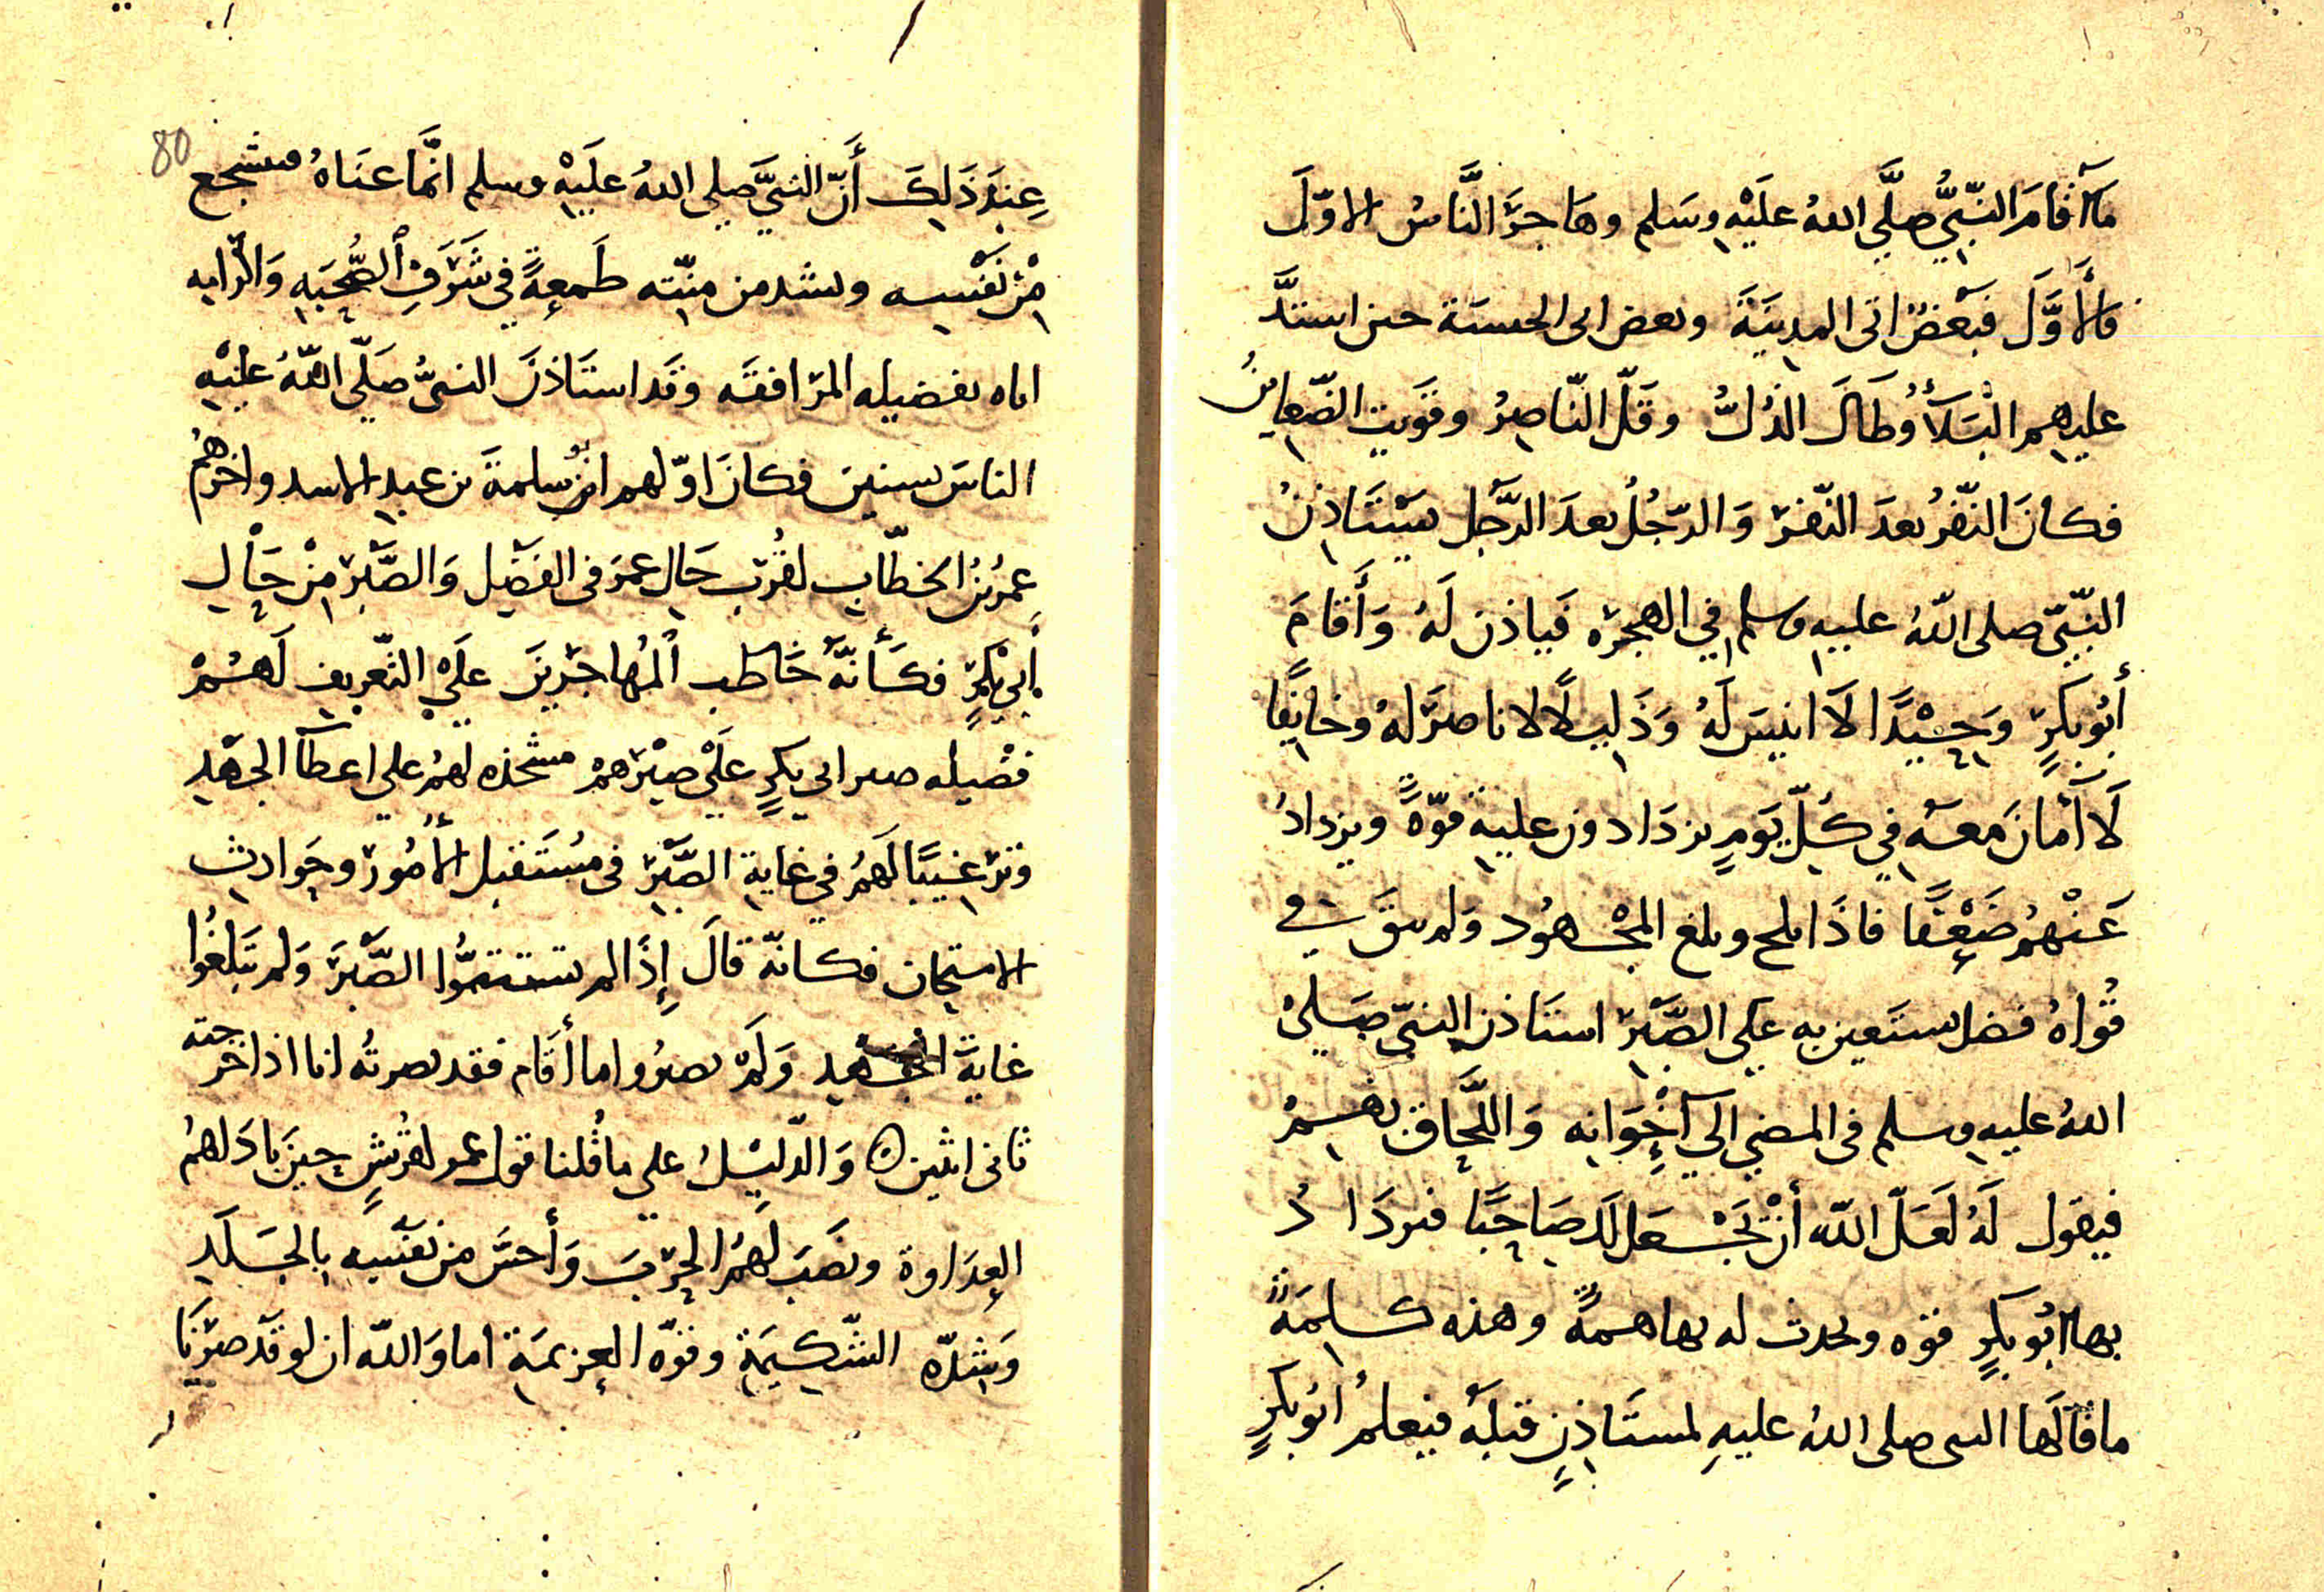 ما اقام النَّبِيُّ صلَّى اللهُ عليْهِ وسَلم وهَاجرَ النَّاسُ الاوّلَ
فالأوَّلَ فبَعْضٌ اتى المدِينَةَ وبعض اتى الحبشة حين اشتدَّ
عليهم البَلَأُ وطَالَ الذُلُّ وقَلّ النّاصِرُ وقَويت الضّغاينُ
فكانَ النّفرُ بعدَ النّفر وَالرّجُلُ بعدَ الرَّجل يَسْتَاذِنُ
النّبيّ صلى اللّهُ عليه وسلم في الهجره فَياذن لَهُ وَأَقامَ
أبُوبَكرٍ وَحيْدًا لَا انيسَ لَهُ وَذَليلًا لا ناصرَ لهُ وخايفًا
لَا أمانَ معَهُ في كُلّ يَومٍ يزدَادون عليه قوّةً ويزدادُ
عَنْهُم ضَعْفًا فاذَا بلح وبلغ المجْهُود وَلم يبقَ في
قُواهُ فضل يستَعين به على الصَّبْر استَاذن النبيّ صَلىْ
اللهُ عليهِ وسلم في المضي الى إِخْوَانِه وَاللَّحَاق بهمُ
فيقول لَهُ لَعَلّ اللّه أنْ يَجْعَل لَك صَاحِبًا فيزدَادُ
بها ابُو بكرٍ قوّه ويحدث له بها همةً وهذه كلمَةٌ
ما قالَها النبي صلى اللهُ عليهِ لمستَاذِنٍ قبلَهُ فيعلمُ ابُو بكرٍ
80
عِندَ ذَلِكَ أَنّ النبيَّ صلى اللهُ عليْهِ وسلم انَّما عنَاهُ فشجع
مِنْ نفْسِه وشد من منّته طَمعةً في شَرَفِ الصُّحبَهِ وَالرّايه
اياه بفضيله المرَافقَه وقد استَاذنَ النبيَّ صَلّى اللّهُ عليْهِ
الناسَ سنين فكانَ اوّلهم ابُو سلمةَ بن عبدِ الاسد واخرهُم
عمرُ بنُ الخطّابِ لقُربِ حَال عمَر في الفضْلِ وَالصَّبْر مِنْ حَالِ
أبي بكْرٍ فكَأَنّهُ خَاطب المُهاجرِينَ عَلَى التّعْرِيف لَهُمْ
فضْيله صبر ابي بكرٍ عَلَى صبْرهمْ مشحذه لهمُ على اعطآ الجَهْد
وترغيبًا لَهمُ في غاية الصَّبْر في مُستَقبل الأمُور وحَوادث
الامتحان فكانّه قالَ إِذَا لم تستتمُّوا الصَّبْرَ وَلم تَبلغُوا
غايَةَ الجهد وَلَمْ تصبرُوا ما أقَام فقد نصرتُه انا اذ اخرجته
ثانى اثنين ه وَالدّليْلُ على ما قُلنا قول عمر لقُرَيشٍ حينَ بادَاهمُ
العدَاوة ونصَبَ لهُمُ الحرْبَ وَأحسَّ من نفْسِه بالجَلَدِ
وَشِدّه الشّكيمَةِ وقوّه العزيمَة اما وَاللّه ان لو قَد صرْنَا